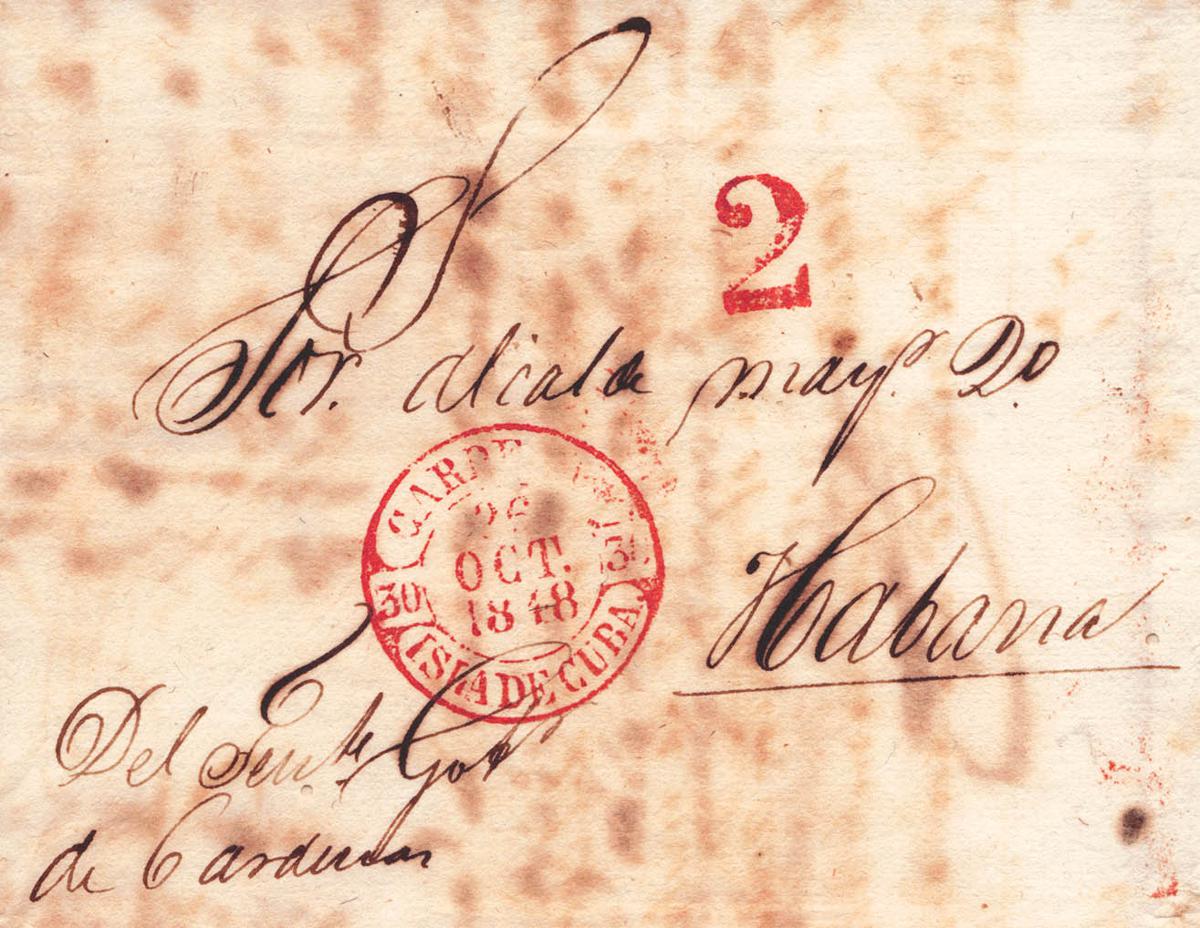 S
2
Sor. Alcalde mayr. 2o.
CARDE
26
OCT.
1848
30
ISLA DE CUBA
Habana
Del Tente Gobr
de Cardenas